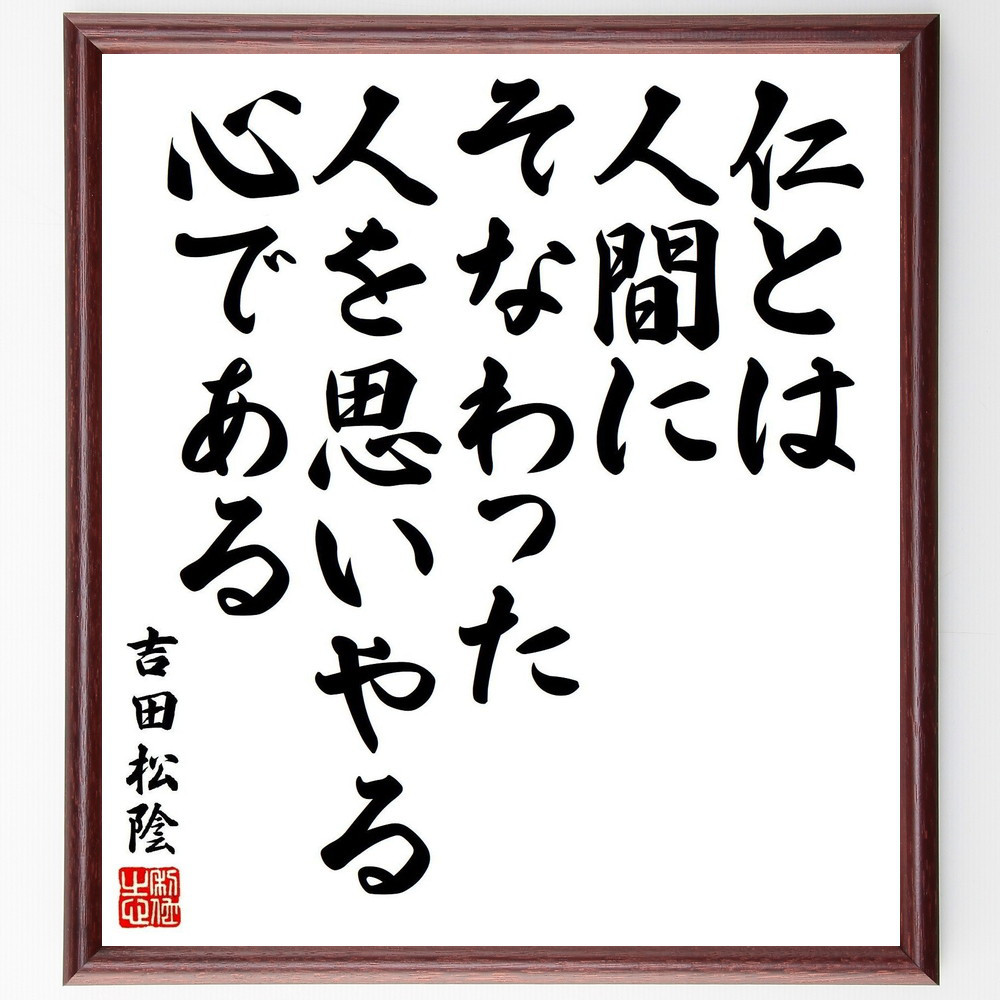 仁とは
人間に
そなわった
人を思いやる
心である
吉田松陰